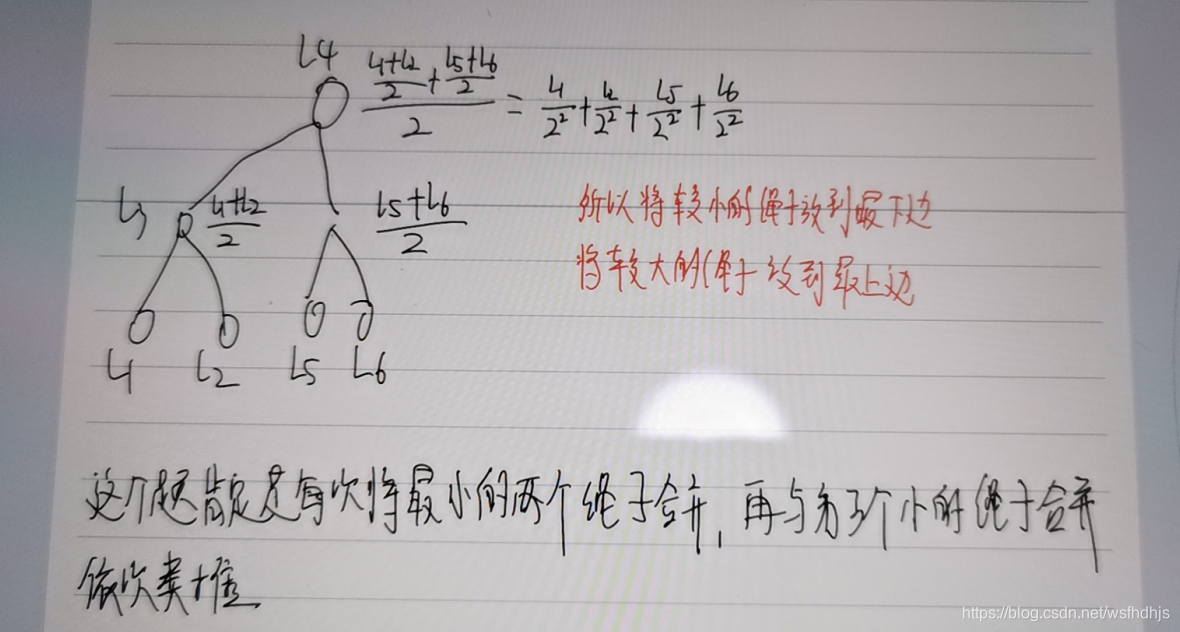 L4
\frac{\frac{L1+L2}{2}+\frac{L5+L6}{2}}{2} = \frac{L1}{2^2}+\frac{L2}{2^2}+\frac{L5}{2^2}+\frac{L6}{2^2}
L3 \frac{L1+L2}{2} \frac{L5+L6}{2}
所以将较小的绳子放到最下边
将较大的绳子放到最上边
L1 L2 L5 L6
这个题肯定是每次将最小的两个绳子合并,再与第3个小的绳子合并
依次类推
https://blog.csdn.net/wsfhdhjs